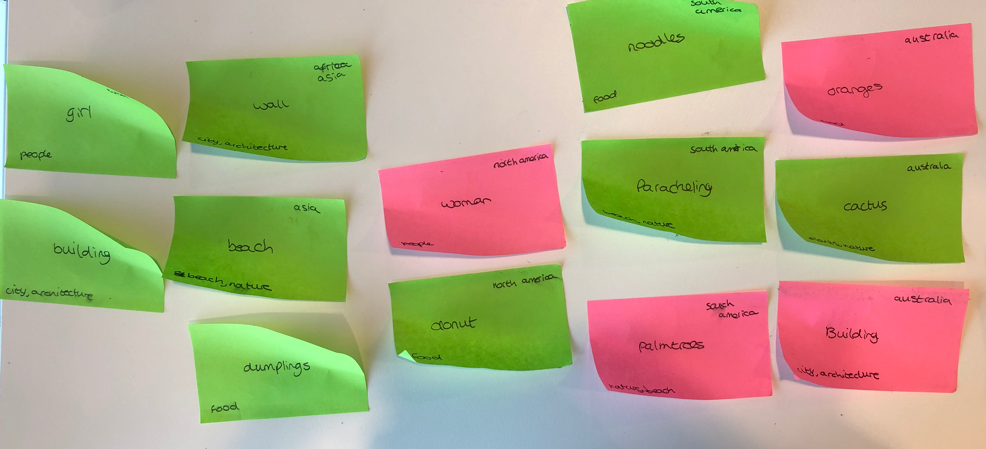 girl
people
building
city, architecture
africa
asia
wall
city, architecture
asia
beach
beach, nature
dumplings
food
north america
woman
people
north america
donut
food
south
america
noodles
food
south america
Paracheling
nature
south
america
palmtrees
nature beach
australia
oranges
australia
cactus
nature
australia
Building
city, architecture